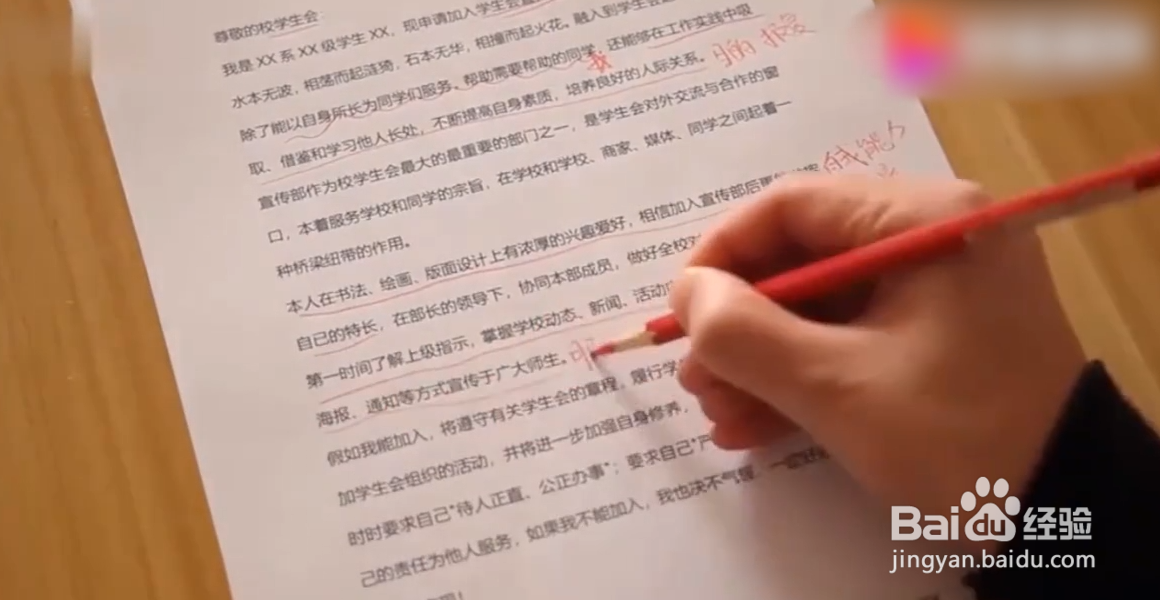 尊敬的校学生会:
我是XX系XX级学生XX,现申请加入学生会
水本无波,相荡而起涟猗,石本无华,相撞而起火花。融入到学生会
除了能以自身所长为同学们服务、帮助需要帮助的同学,还能够在工作实践中吸
取、借鉴和学习他人长处,不断提高自身素质,培养良好的人际关系。
我
宣传部作为校学生会最大的最重要的部门之一,是学生会对外交流与合作的窗
口,本着服务学校和同学的宗旨,在学校和学校、商家、媒体、同学之间起着一
种桥梁纽带的作用。
本人在书法、绘画、版面设计上有浓厚的兴趣爱好,相信加入宣传部后更
自己的特长,在部长的领导下,协同本部成员,做好全校
第一时间了解上级指示,掌握学校动态、新闻、活动
海报、通知等方式宣传于广大师生。
假如我能加入,将遵守有关学生会的章程,履行学
加学生会组织的活动,并将进一步加强自身修养,
时时要求自己"待人正直、公正办事";要求自己"严
己的责任为他人服务,如果我不能加入,我也决不气馁,一
Baidu经验
jingyan.baidu.com